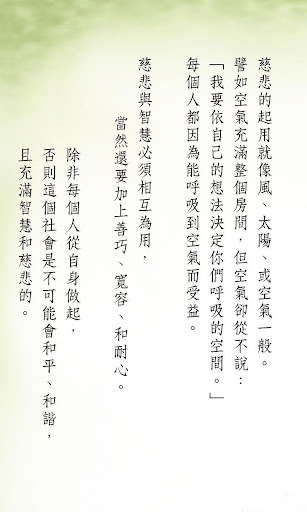 慈悲的起用就像風、太陽、或空氣一般。
譬如空氣充滿整個房間，但空氣卻從不說：
「我要依自己的想法決定你們呼吸的空間。」
每個人都因為能呼吸到空氣而受益。
慈悲與智慧必須相互為用，
當然還要加上善巧、寬容、和耐心。
除非每個人從自身做起，
否則這個社會是不可能會和平、和諧，
且充滿智慧和慈悲的。